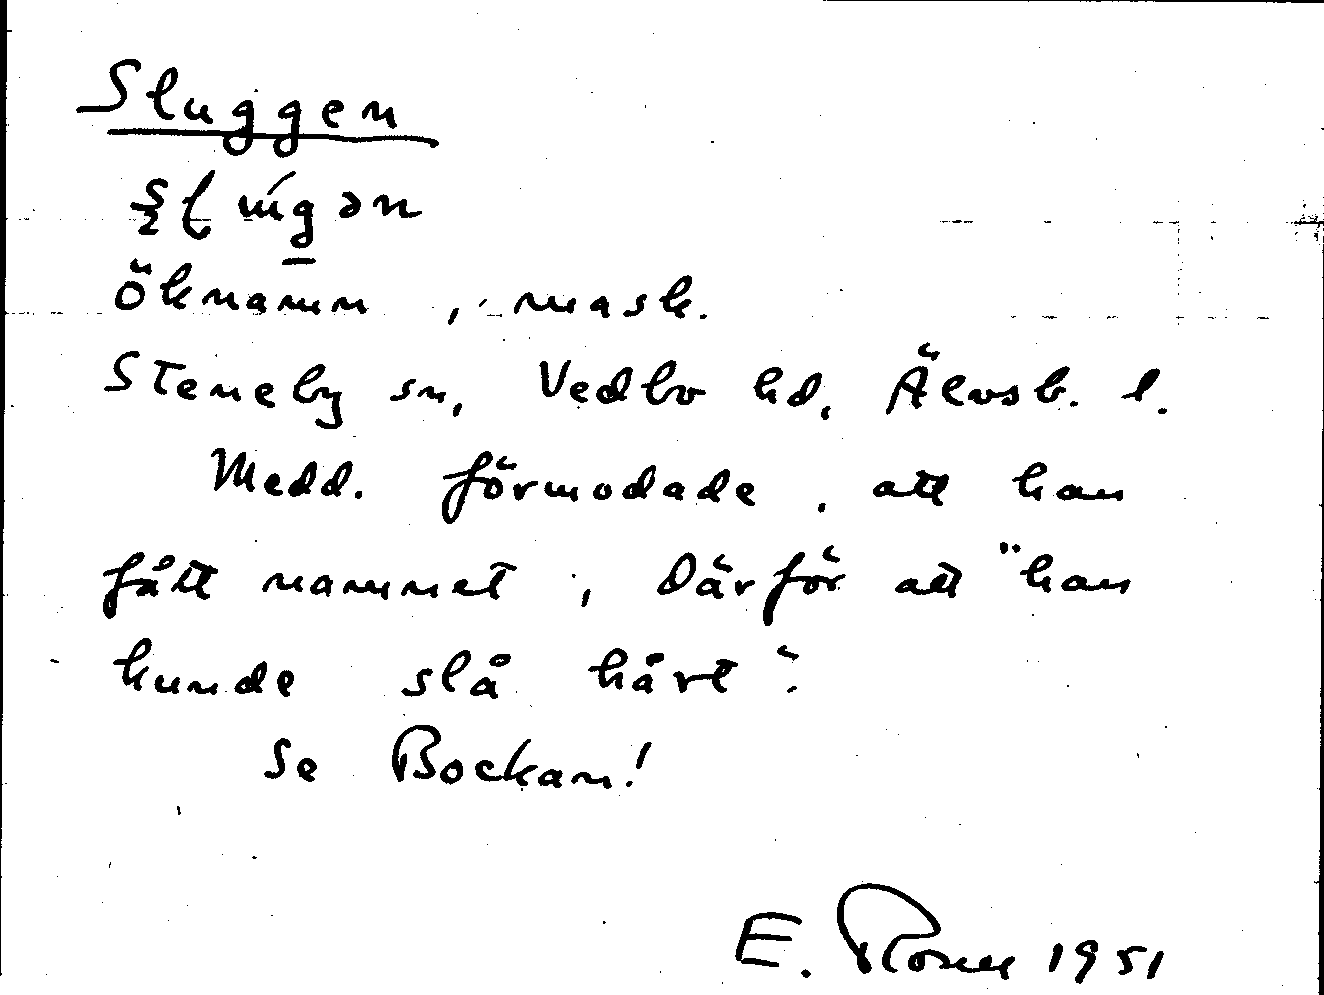 Sluggen
öknamn, mask.
Steneby sn, Vedbo hd, Älvsb. l.
Medd. förmodade, att han
fått namnet, därför att "han
kunde slå hårt".
Se Bockan!
E. 1951